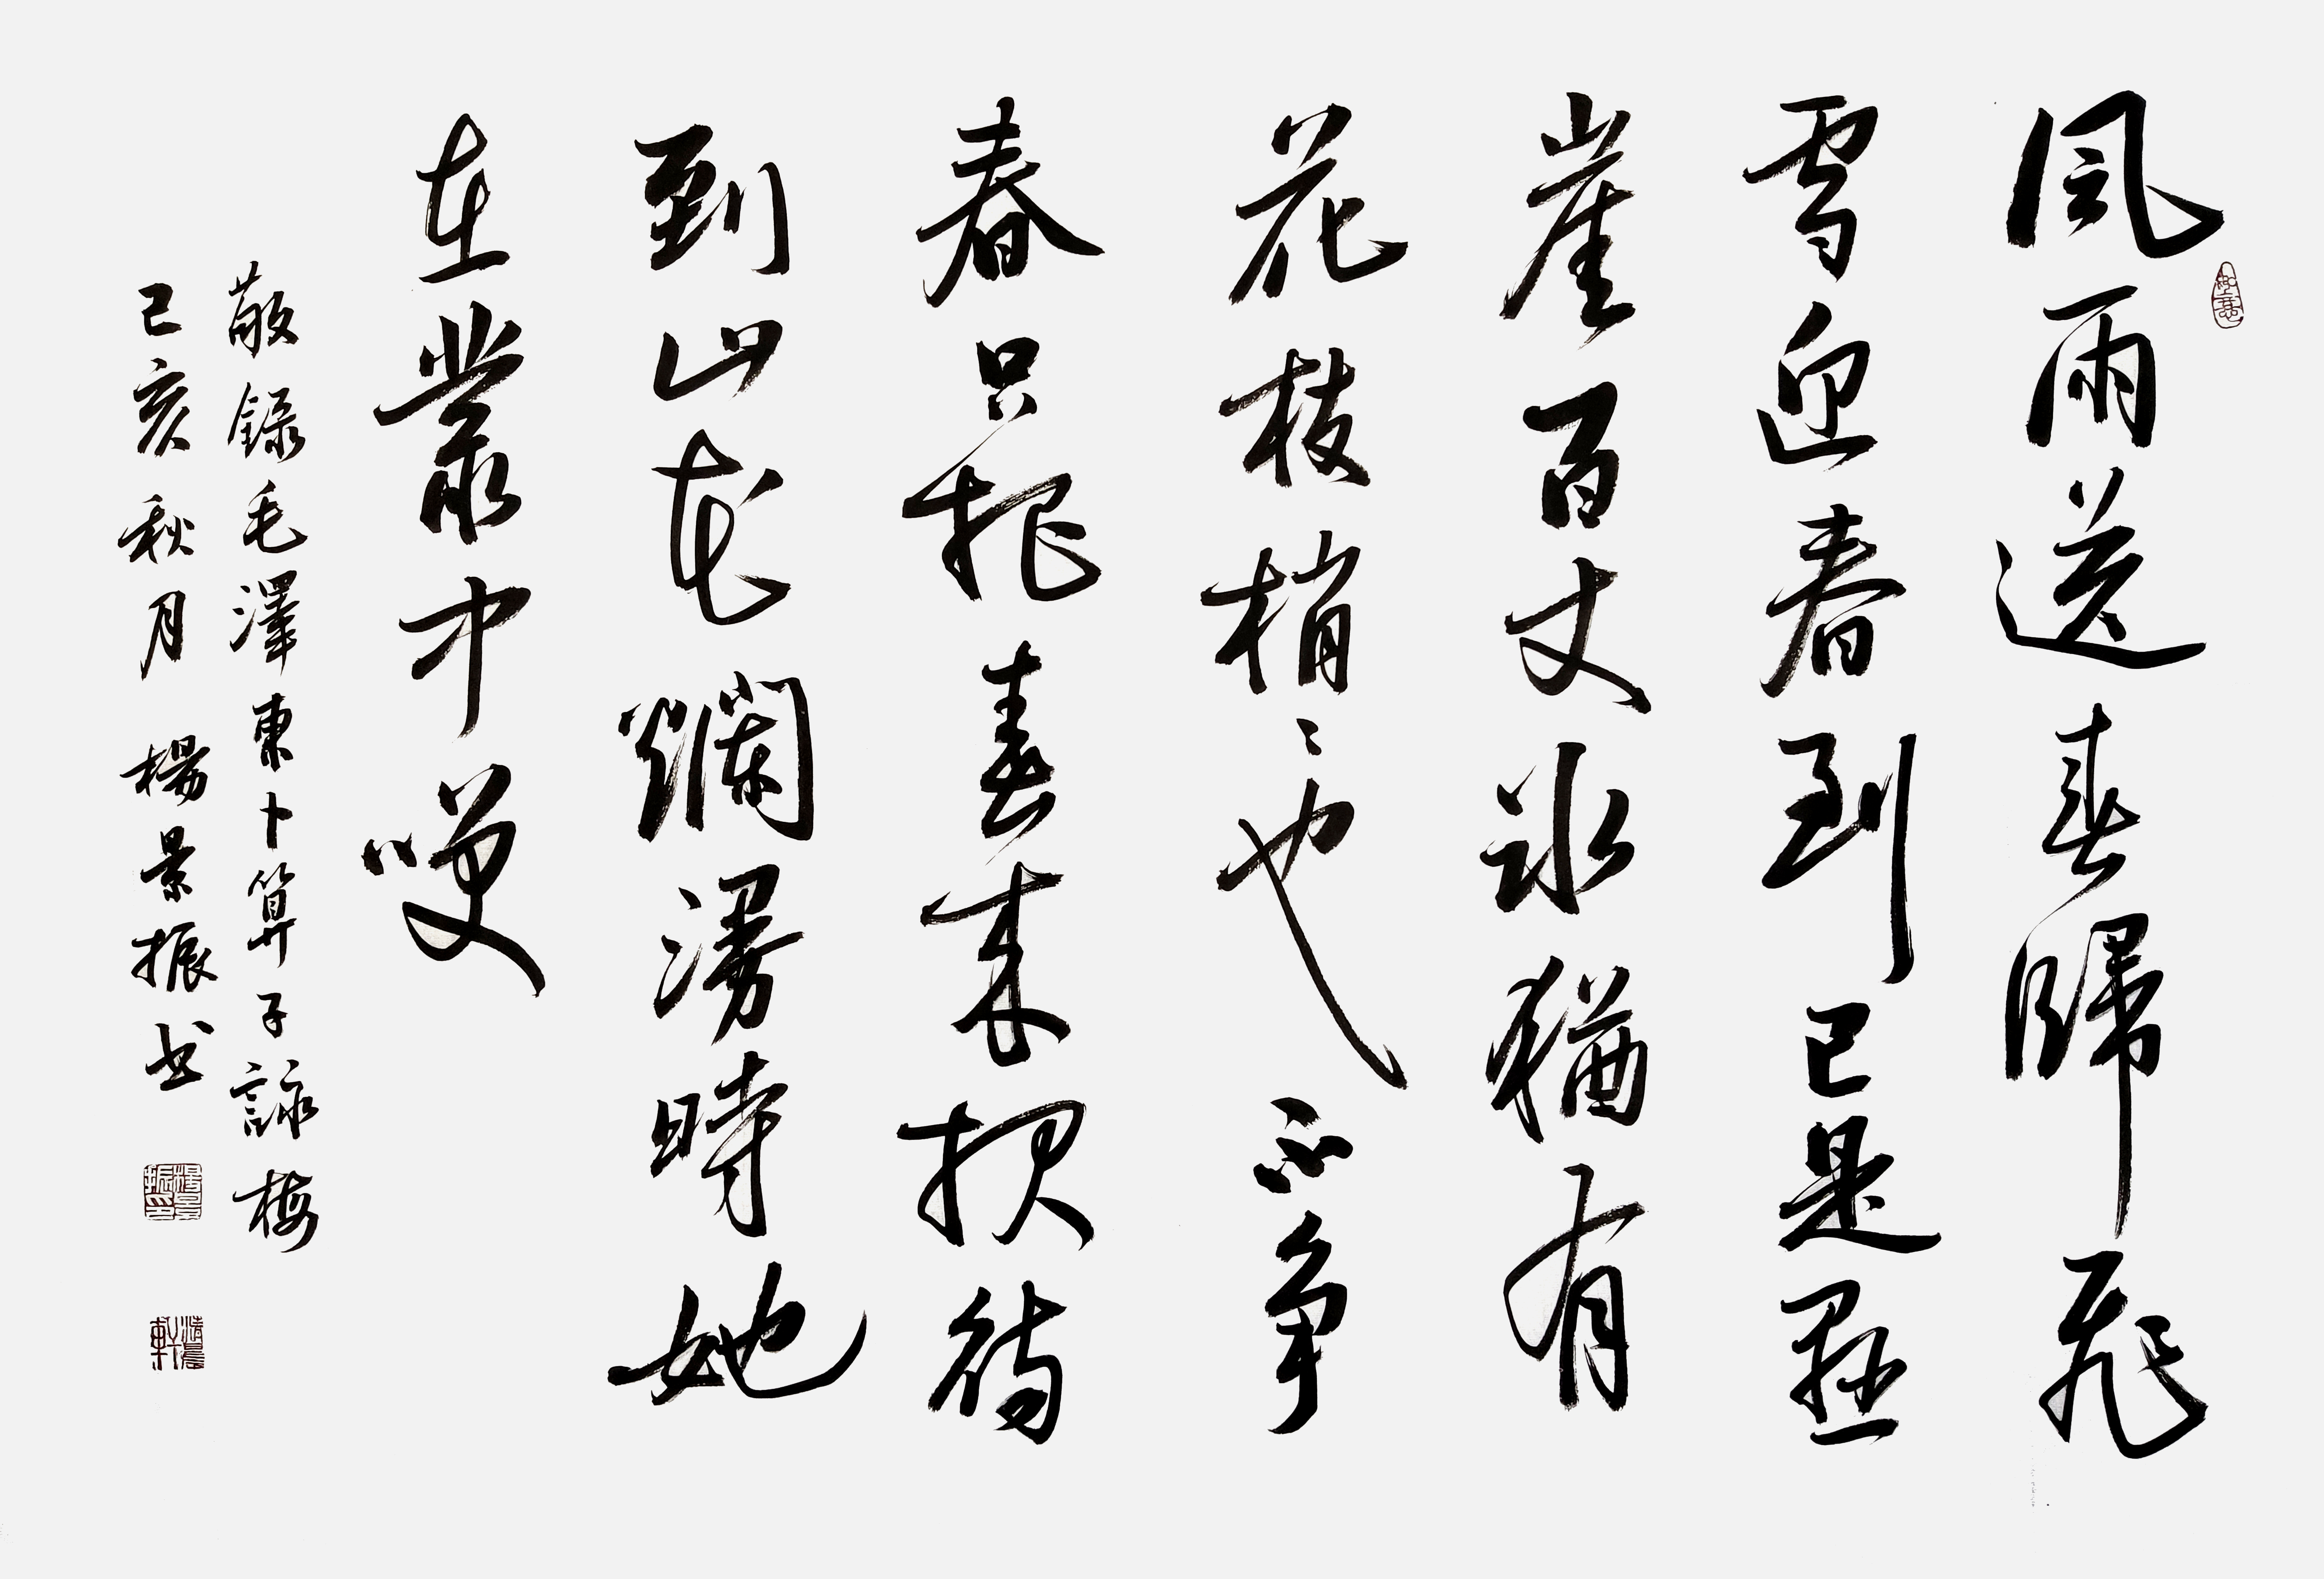 風雨送春歸飛
雪迎春到已是懸
崖百丈冰猶有
花枝梢〻也不争
春只把春來报待
到山花爛漫時她
在叢中咲
敬錄毛澤東卜算子詠梅
己亥秋月 楊景振书
如意
楊景振印